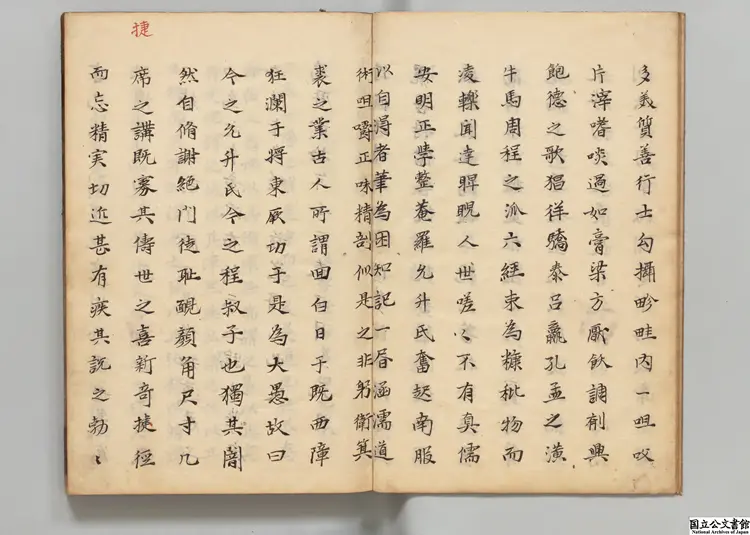 多義質善行士勾攝畛畦內一咀㕮
片滓嗜啖過如膏梁方厭飲調劑興
飽德之歌猖徉驕泰呂羸孔孟之潢
牛馬周程之派六經束為糠秕物而
淩轢聞達睥睨人世嗟〻不有真儒
安明正學整菴羅允升氏奮起南服
以自得者筆為困知記一唇涵濡道
術咀嚼正味精剖似是之非躬衛箕
裘之業古人所謂回白日于既西障
狂瀾于將東厥功于是為大愚故曰
今之允升氏今之程叔子也獨其闇
然自脩謝絕門徒耻靦顏角尺寸几
席之講既寡其儔世之喜新奇捷徑
而忘精実切近甚有疾其說之勃〻
捷
国立公文書館
National Archives of Japan